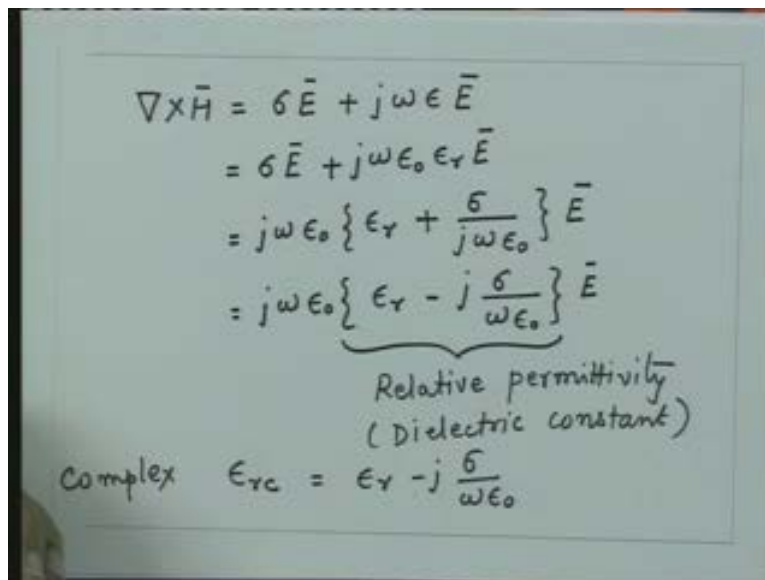 ∇×H̄ = σĒ + jωϵĒ
= σĒ + jωϵ₀ϵᵣĒ
= jωϵ₀{ϵᵣ + σ/jωϵ₀}Ē
= jωϵ₀{ϵᵣ - j σ/ωϵ₀}Ē
Relative permittivity
(Dielectric constant)
Complex ϵᵣc = ϵᵣ - j σ/ωϵ₀